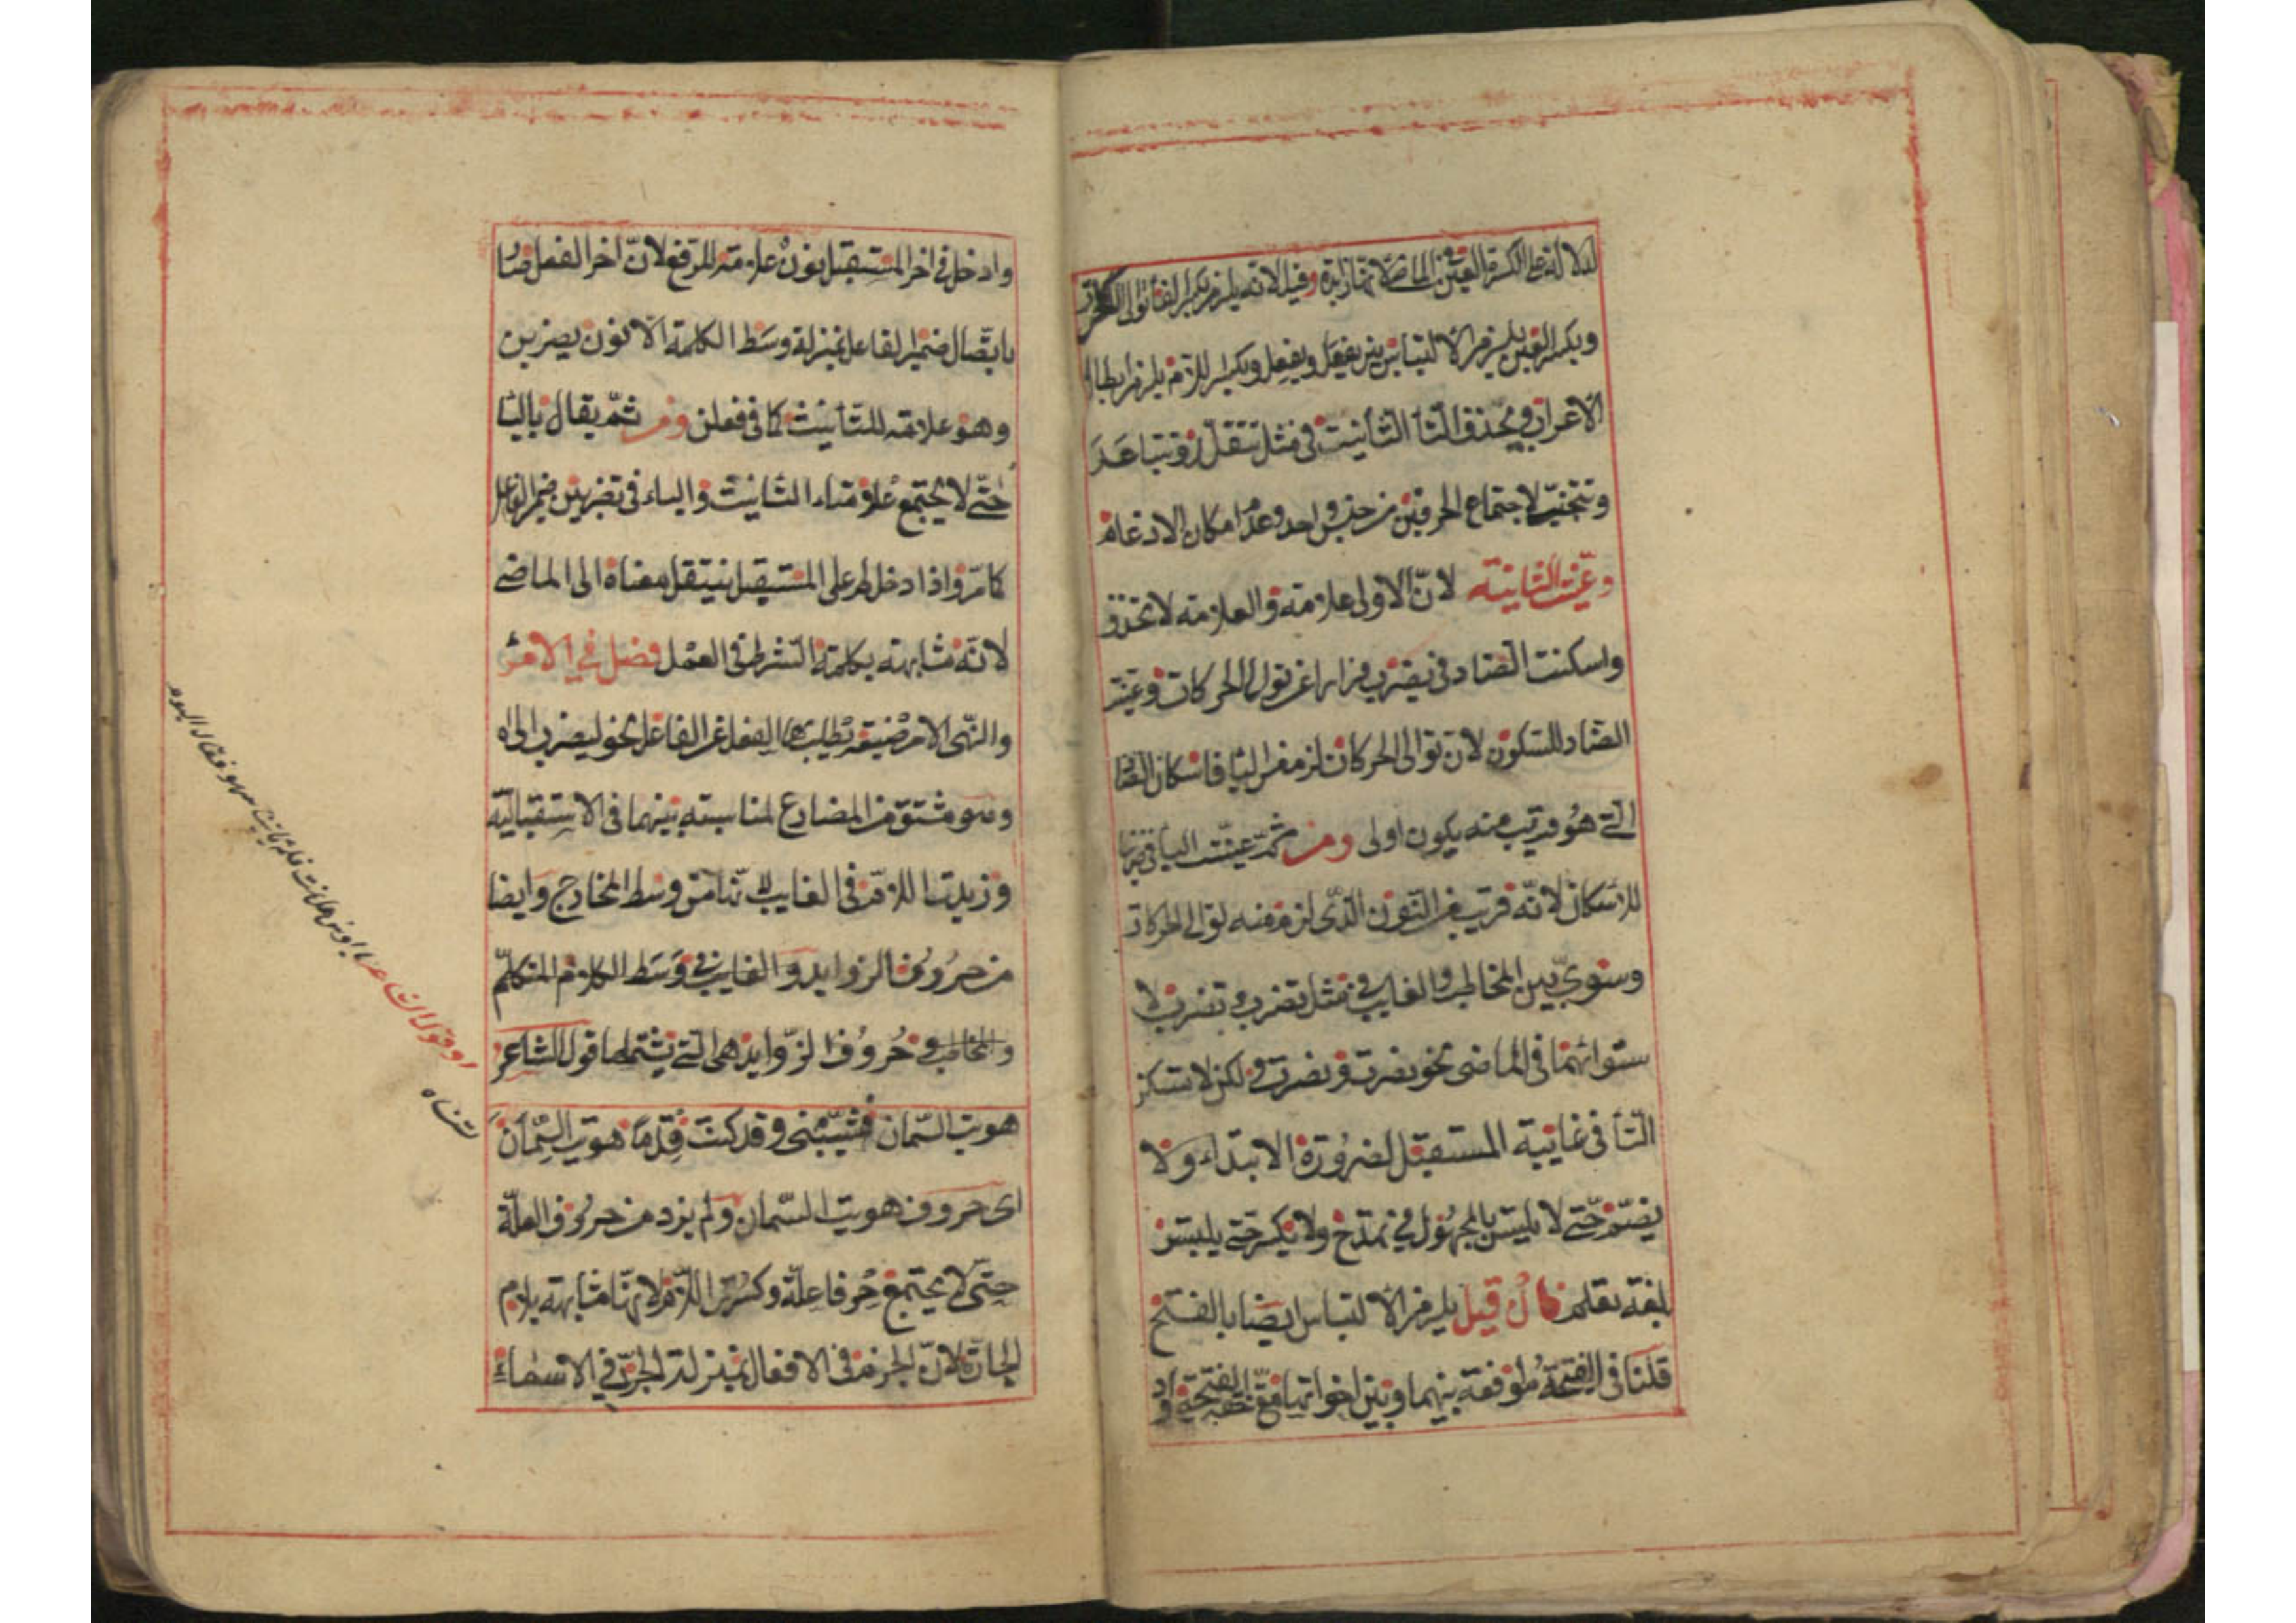 للدلالة على الكسرة العين في الماضي لانها زايدة وقيل لانه يلزم بكسر الفا توالى الحركات
وبكسر العين يلزم الالتباس بين يفعل ويفعل وبكسر اللام يلزم ابطال
الاعراب ويحذف التأ التأنيث في مثل تتقلد وتتباعد
وتتبختر لاجتماع الحرفين من جنس واحد وعدم امكان الادغام
وعينت الثانية لان الاولى علامته والعلامته لا تحذف
واسكنت الضاد في يضرب فرارا عن توالى الحركات وعينت
الضاد للسكون لان توالى الحركات لزم من اليا فاسكان الضاد
التى هو قريب منه يكون اولى ومن ثمة عينت البا في ضربن
للاسكان لانه قريب من النون الذى لزم منه توالى الحركات
وسوى بين المخاطب والغايب في مثل تضرب وتضرب لا
ستوائهما في الماضى نحو نصرت ونصرت ولكن لا تسكن
التأ في غايبة المستقبل لضرورة الابتداء ولا
يضم حتى لا يلبتس بالمجهول في تمدح ولا يكسر حتى يلبتس
بلغة تعلم فان قيل يلزم الالتباس ايضا بالفتح
قلنا في الفتحة موافقة بينهما وبين اخواتها مع خفة الفتحة
وادخل في اخر المستقبل نون علامته للرفع لان اخر الفعل صار
باتصال ضمير الفاعل بمنزلة وسط الكلمة الا نون يضربن
وهو علامته للتأنيث كما في فعلن ومن ثم يقال باليا
حتى لا يجتمع علامتاء التانيث والياء في تضربين ضمير الفاعل
كما مر واذا دخل لم على المستقبل ينتقل معناه الى الماضى
لانه مشابهته بكلمة الشرط في العمل فصل في الامر
والنهى الامر صيغه يطلب بها الفعل عن الفاعل نحو ليضرب الى اه
وهو مشتق من المضارع لمناسبته بينهما في الاستقبالية
وزيدت اللام في الغايب لانها من وسط المخارج وايضا
من حروف الزوايد والغايب في وسط الكلام المتكلم
والمخاطب وحروف الزوايد هى التى يشتملها قول الشاعر
هويت السمان فشيبنى وقد كنت قدما هويت السمان
اى حروف هويت السمان ولم يزد من حروف العلة
حتى لا يجتمع حرفا علة وكسرت اللام لانها مشابهته بلام
الجارة لان الجزم في الافعال بمنزلة الجر في الاسماء
او قول الشاعر